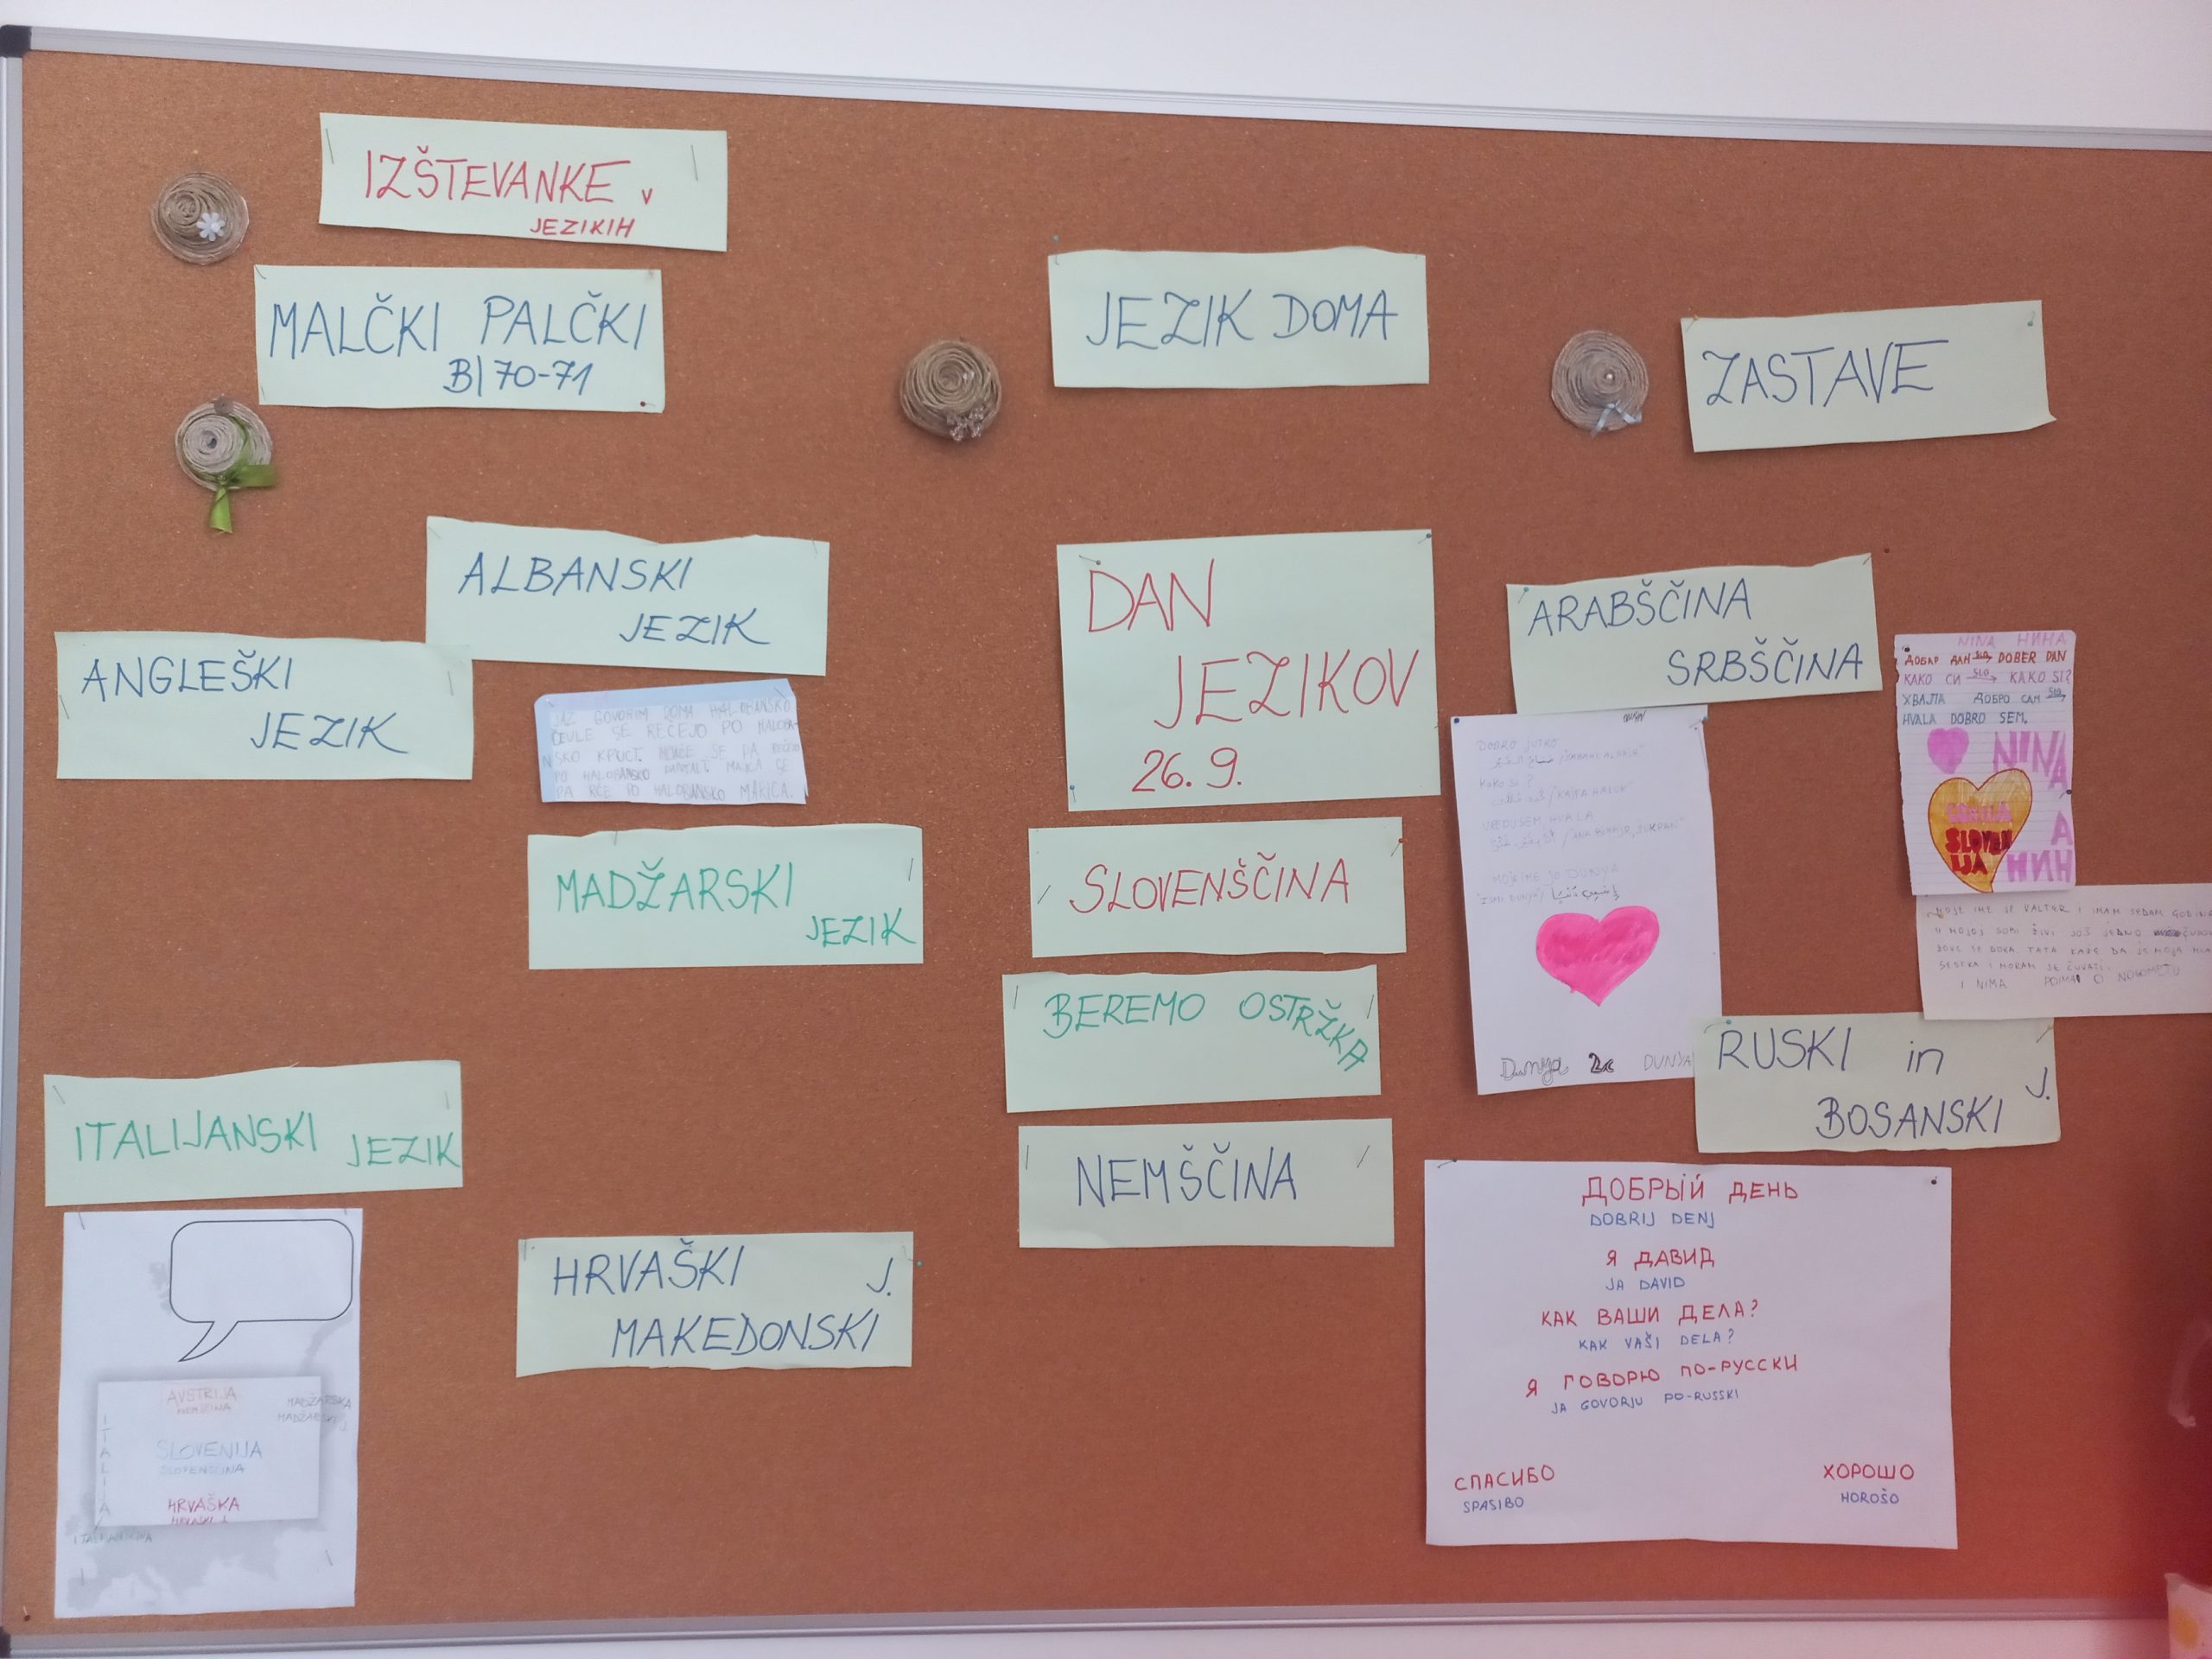 IZŠTEVANKE V
JEZIKIH
MALČKI PALČKI
B|70-71
JEZIK DOMA
ZASTAVE
ALBANSKI
JEZIK
ANGLEŠKI
JEZIK
JAZ GOVORIM DOMA HALOBANSKO
ČEVLE SE REČEJO PO
KPUCT.
PO HALOBANSKO MAJCA SE
PA RČE PO HALOBANSKO MAKICA.
MADŽARSKI
JEZIK
ITALIJANSKI JEZIK
AVSTRIJA
NEMŠČINA
MADŽARSKA
MADŽARSKI J
ITALIJA
SLOVENIJA
SLOVENŠČINA
HRVAŠKA
HRVAŠKI J
HRVAŠKI J.
MAKEDONSKI
DAN
JEZIKOV
26. 9.
SLOVENŠČINA
BEREMO OSTRŽKA
NEMŠČINA
ARABŠČINA
SRBŠČINA
DOBRO JUTRO
KAKO SI?
HVALA
MOJE IME JE DUNYA
Dunya 2c DUNYA
NINA НИНА
ДОБАР ДАН SLO DOBER DAN
КАКО СИ SLO KAKO SI?
ХВАЛА ДОБРО САМ SLO
HVALA DOBRO SEM.
NINA
SLOVEN
IJA
НИНА
MOJE IME JE VALTER I IMAM SEDAM GODINA
U MOJOJ SOBI ŽIVI JOŠ JEDNO
ZOVE SE DORA. TATA KAŽE DA JE MOJA
SESTRA I MORAM JE ČUVATI.
I NIMA POJMA O NOGOMETU
RUSKI in
BOSANSKI J.
ДОБРЫЙ ДЕНЬ
DOBRIJ DENJ
Я ДАВИД
JA DAVID
КАК ВАШИ ДЕЛА?
KAK VAŠI DELA?
Я ГОВОРЮ ПО-РУССКИ
JA GOVORJU PO-RUSSKI
СПАСИБО
SPASIBO
ХОРОШО
HOROŠO